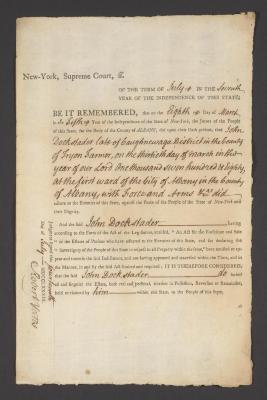 New-York, Supreme Court, ſſ.
OF THE TERM OF July IN THE Seventh
YEAR OF THE INDEPENDENCE OF THIS STATE;
BE IT REMEMBERED, that on the Eighth Day of March
in Fifth Year of the Independence of the State of New-York, the Jurors of the People
of this State, for the Body of the County of ALBANY, did upon their Oath present, that John
Dockstader late of Caughnewaga District in the County
of Tryon Farmer, on the thirtieth day of march in the
year of our Lord One thousand Seven hundred & Eighty
at the first ward of the City of Albany in the County
of Albany, with Force and Arms &c did
adhere to the Enemies of this State, against the Peace of the People of the State of New-York and
their Dignity.
And the said John Dockstader having
according to the Form of the Act of the Legislature, entitled, "An Act for the Forfeiture and Sale
of the Estates of Persons who have adhered to the Enemies of this State, and for declaring the
Sovereignty of the People of this State in respect to all Property within the same,"
and the said Indictment, and not having appeared and traversed within the Time, and in
the Manner, in and by the said Act limited and required: IT IS THEREFORE CONSIDERED,
that the said John Dockstader do forfeit
all and singular the Estate, both real and personal, whether in Possession, Reversion or Remainder,
held or claimed by him within this State, to the People of this State.
Day of July MDCCLXXXIII.
Robert Yates